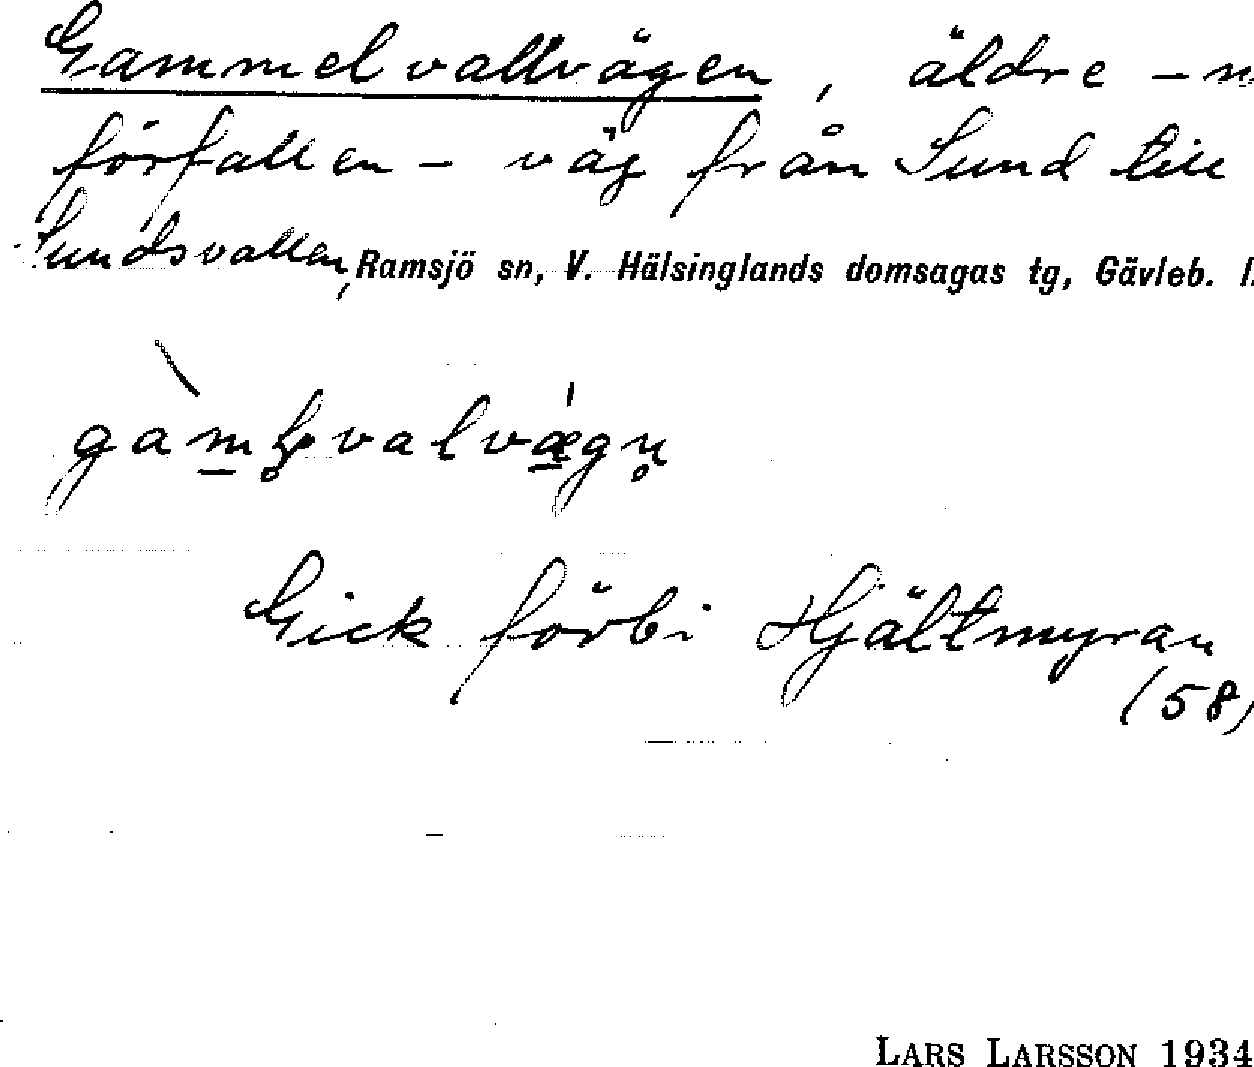 Gammelvallvägen, äldre -
förfallen - väg från Sund till
Sundsvallen, Ramsjö sn, V. Hälsinglands domsagas tg, Gävleb. l.
Gick förbi Hjältmyran
(58)
LARS LARSSON 1934